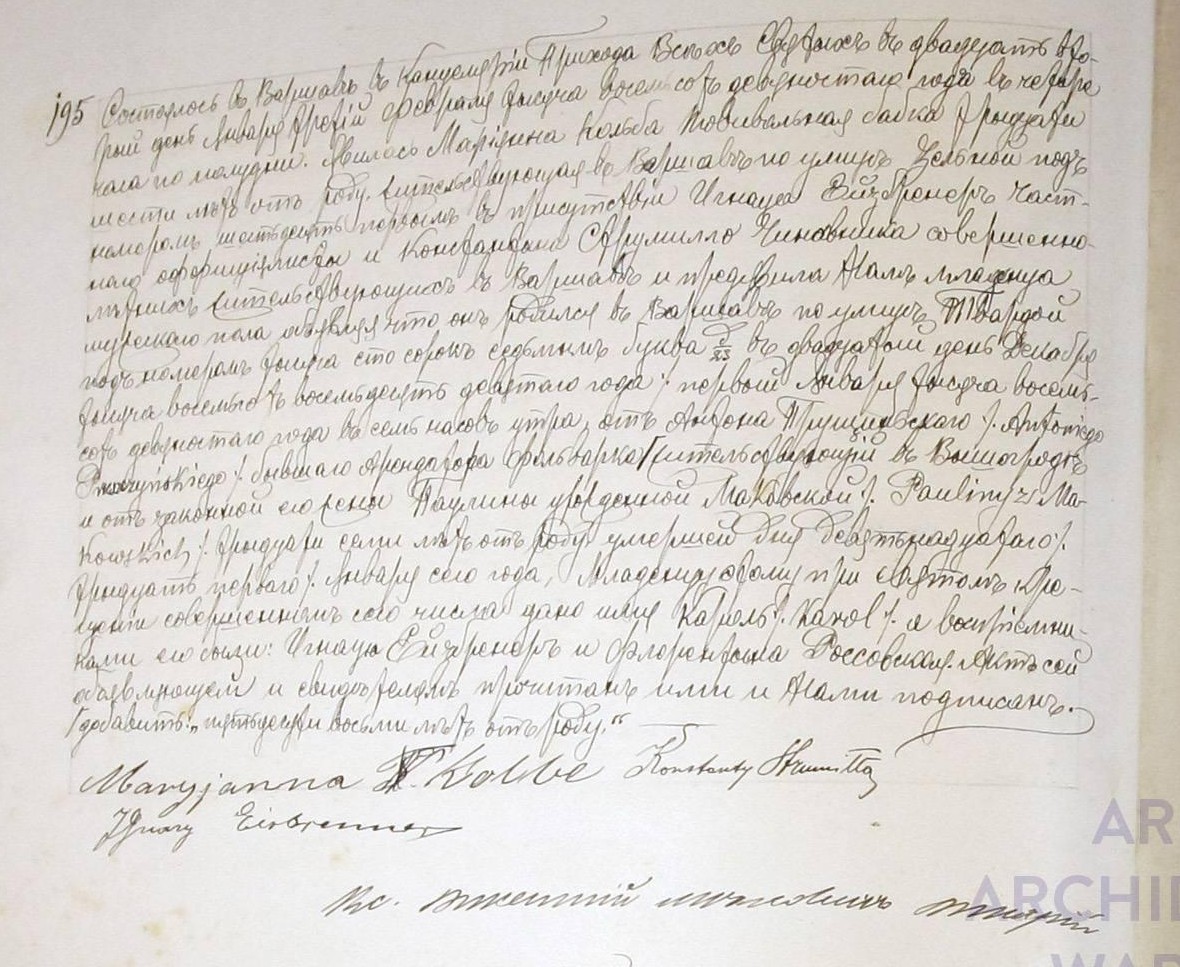 195 Состоялось въ Варшавѣ въ Канцелярiи Прихода Всѣхъ Святыхъ въ двадцать вто-
рый день Января третiй Февраля тысяча восемьсотъ девяностаго года въ четыре
часа по полудни. Явилась Марiянна Кольба повивальная бабка тридцати
шести лѣтъ отъ роду. жительствующая въ Варшавѣ по улицѣ Цельной подъ
номеромъ шестьдесятъ первымъ въ присутствiи Игнаца Ейзбренеръ част-
наго оффицiялисты и Константина Струмилло Чиновника совершенно-
лѣтнихъ жительствующихъ въ Варшавѣ и предъявила Намъ младенца
мужескаго пола объявляя что онъ родился въ Варшавѣ по улицѣ Твардой
подъ номеромъ тысяча сто сорокъ седьмымъ буква въ двадцатый день Декабря
тысяча восемьсотъ восемьдесятъ девятаго года /. первый Января тысяча восемь-
сотъ девяностаго года въ семь часовъ утра, отъ Антона /. Antoniego
/. бывшаго Арендатора Фольварка Г жительствующiй въ Вышогродѣ
и отъ законной его жены Паулины урожденной Маковской /. Pauliny z Ma-
kowskich /. тридцати семи лѣтъ отъ роду умершей дня девятьнадцатаго /.
тридцать перваго /. Января сего года, Младенцу этому при святомъ Кре-
щенiи совершенномъ сего числа дано имя Кароль /. Karol /. а воспрiемни-
ками его были: Игнацы Ейзбренеръ и Флорентына Россовская. Актъ сей
объявляющей и свидѣтелямъ прочитанъ ими и Нами подписанъ.
Г добавить: „пятьдесяти восьми лѣтъ отъ роду."
Maryjanna Kolbe Konstanty Strumiłło
Ignacy Eisbrenner
Кс. викарiй
AR
ARCHI
WAR